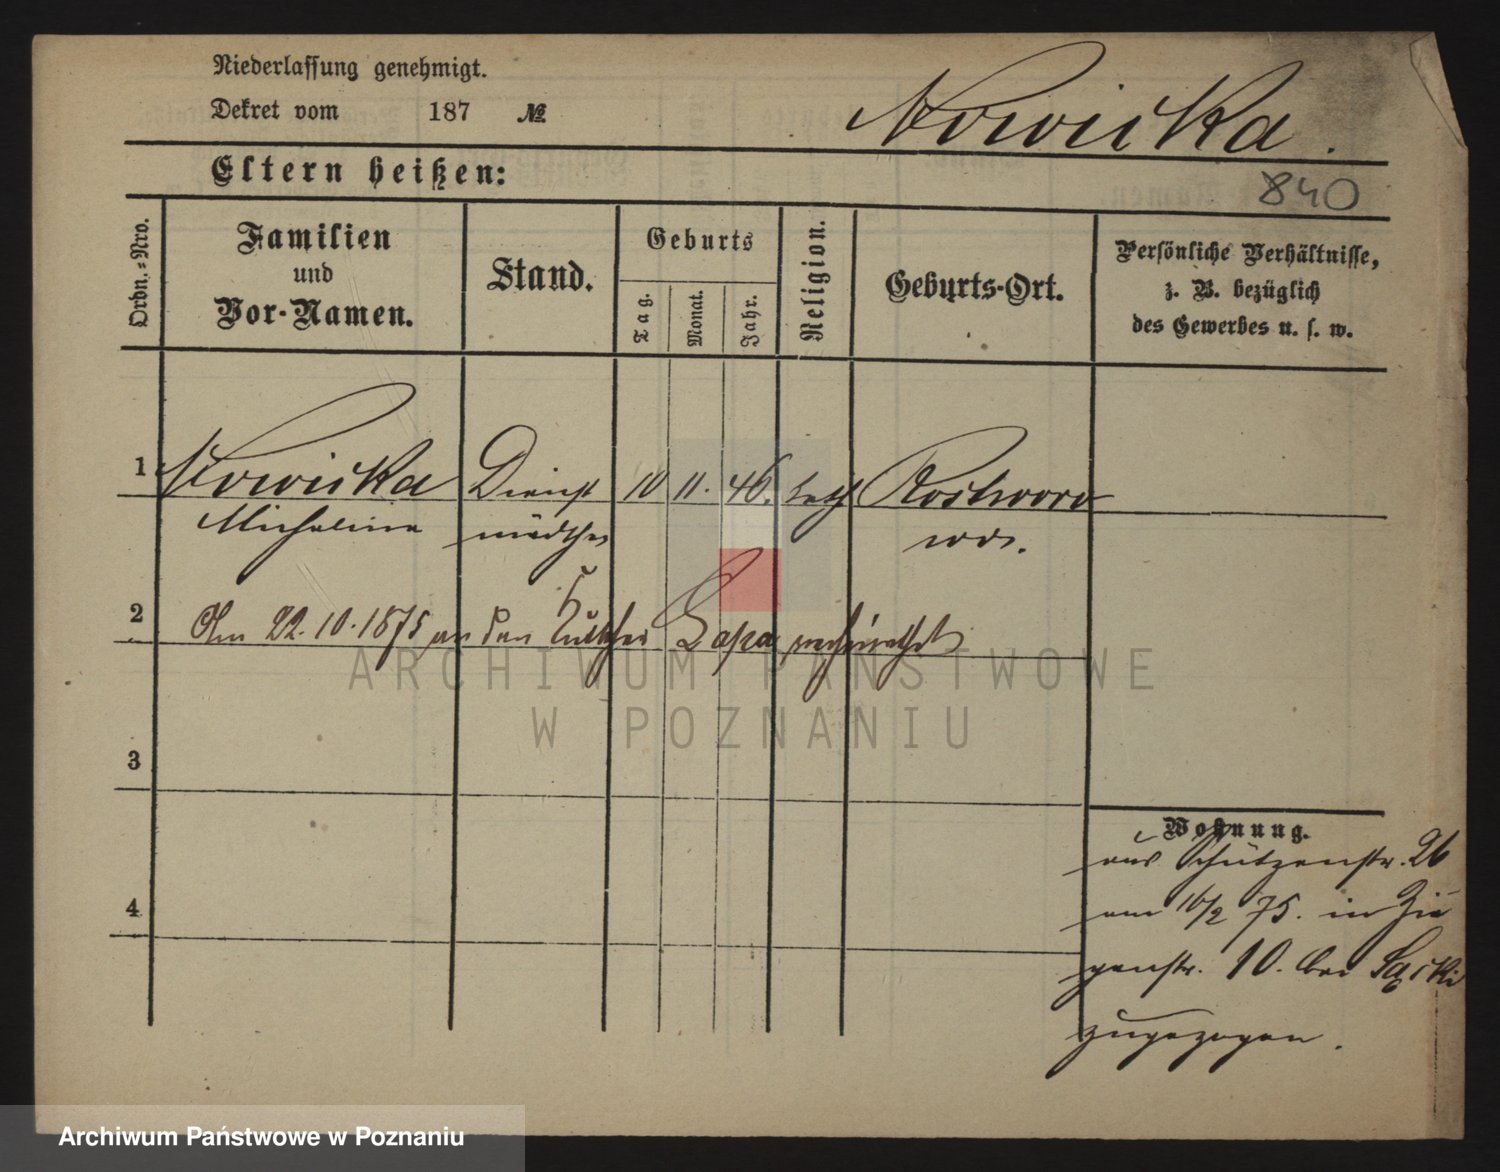 Niederlassung genehmigt.
Dekret vom 187 №
Nowicka.
Eltern heißen:
840
Ordn.=Nro.
Familien
und
Vor-Namen.
Stand.
Geburts
Tag.
Monat.
Jahr.
Religion.
Geburts-Ort.
Persönliche Verhältnisse,
z. B. bezüglich
des Gewerbes u. s. w.
1 Nowicka Dienst 10 11. 46. kath
Michalina mädchen
2 Am 22.10.1875 an den Kutscher verheirathet
ARCHIWUM PAŃSTWOWE
W POZNANIU
3
4
Wohnung.
aus Schützenstr. 26
am 16/2 75. in Zie
genstr. 10. bei
zugezogen.
Archiwum Państwowe w Poznaniu